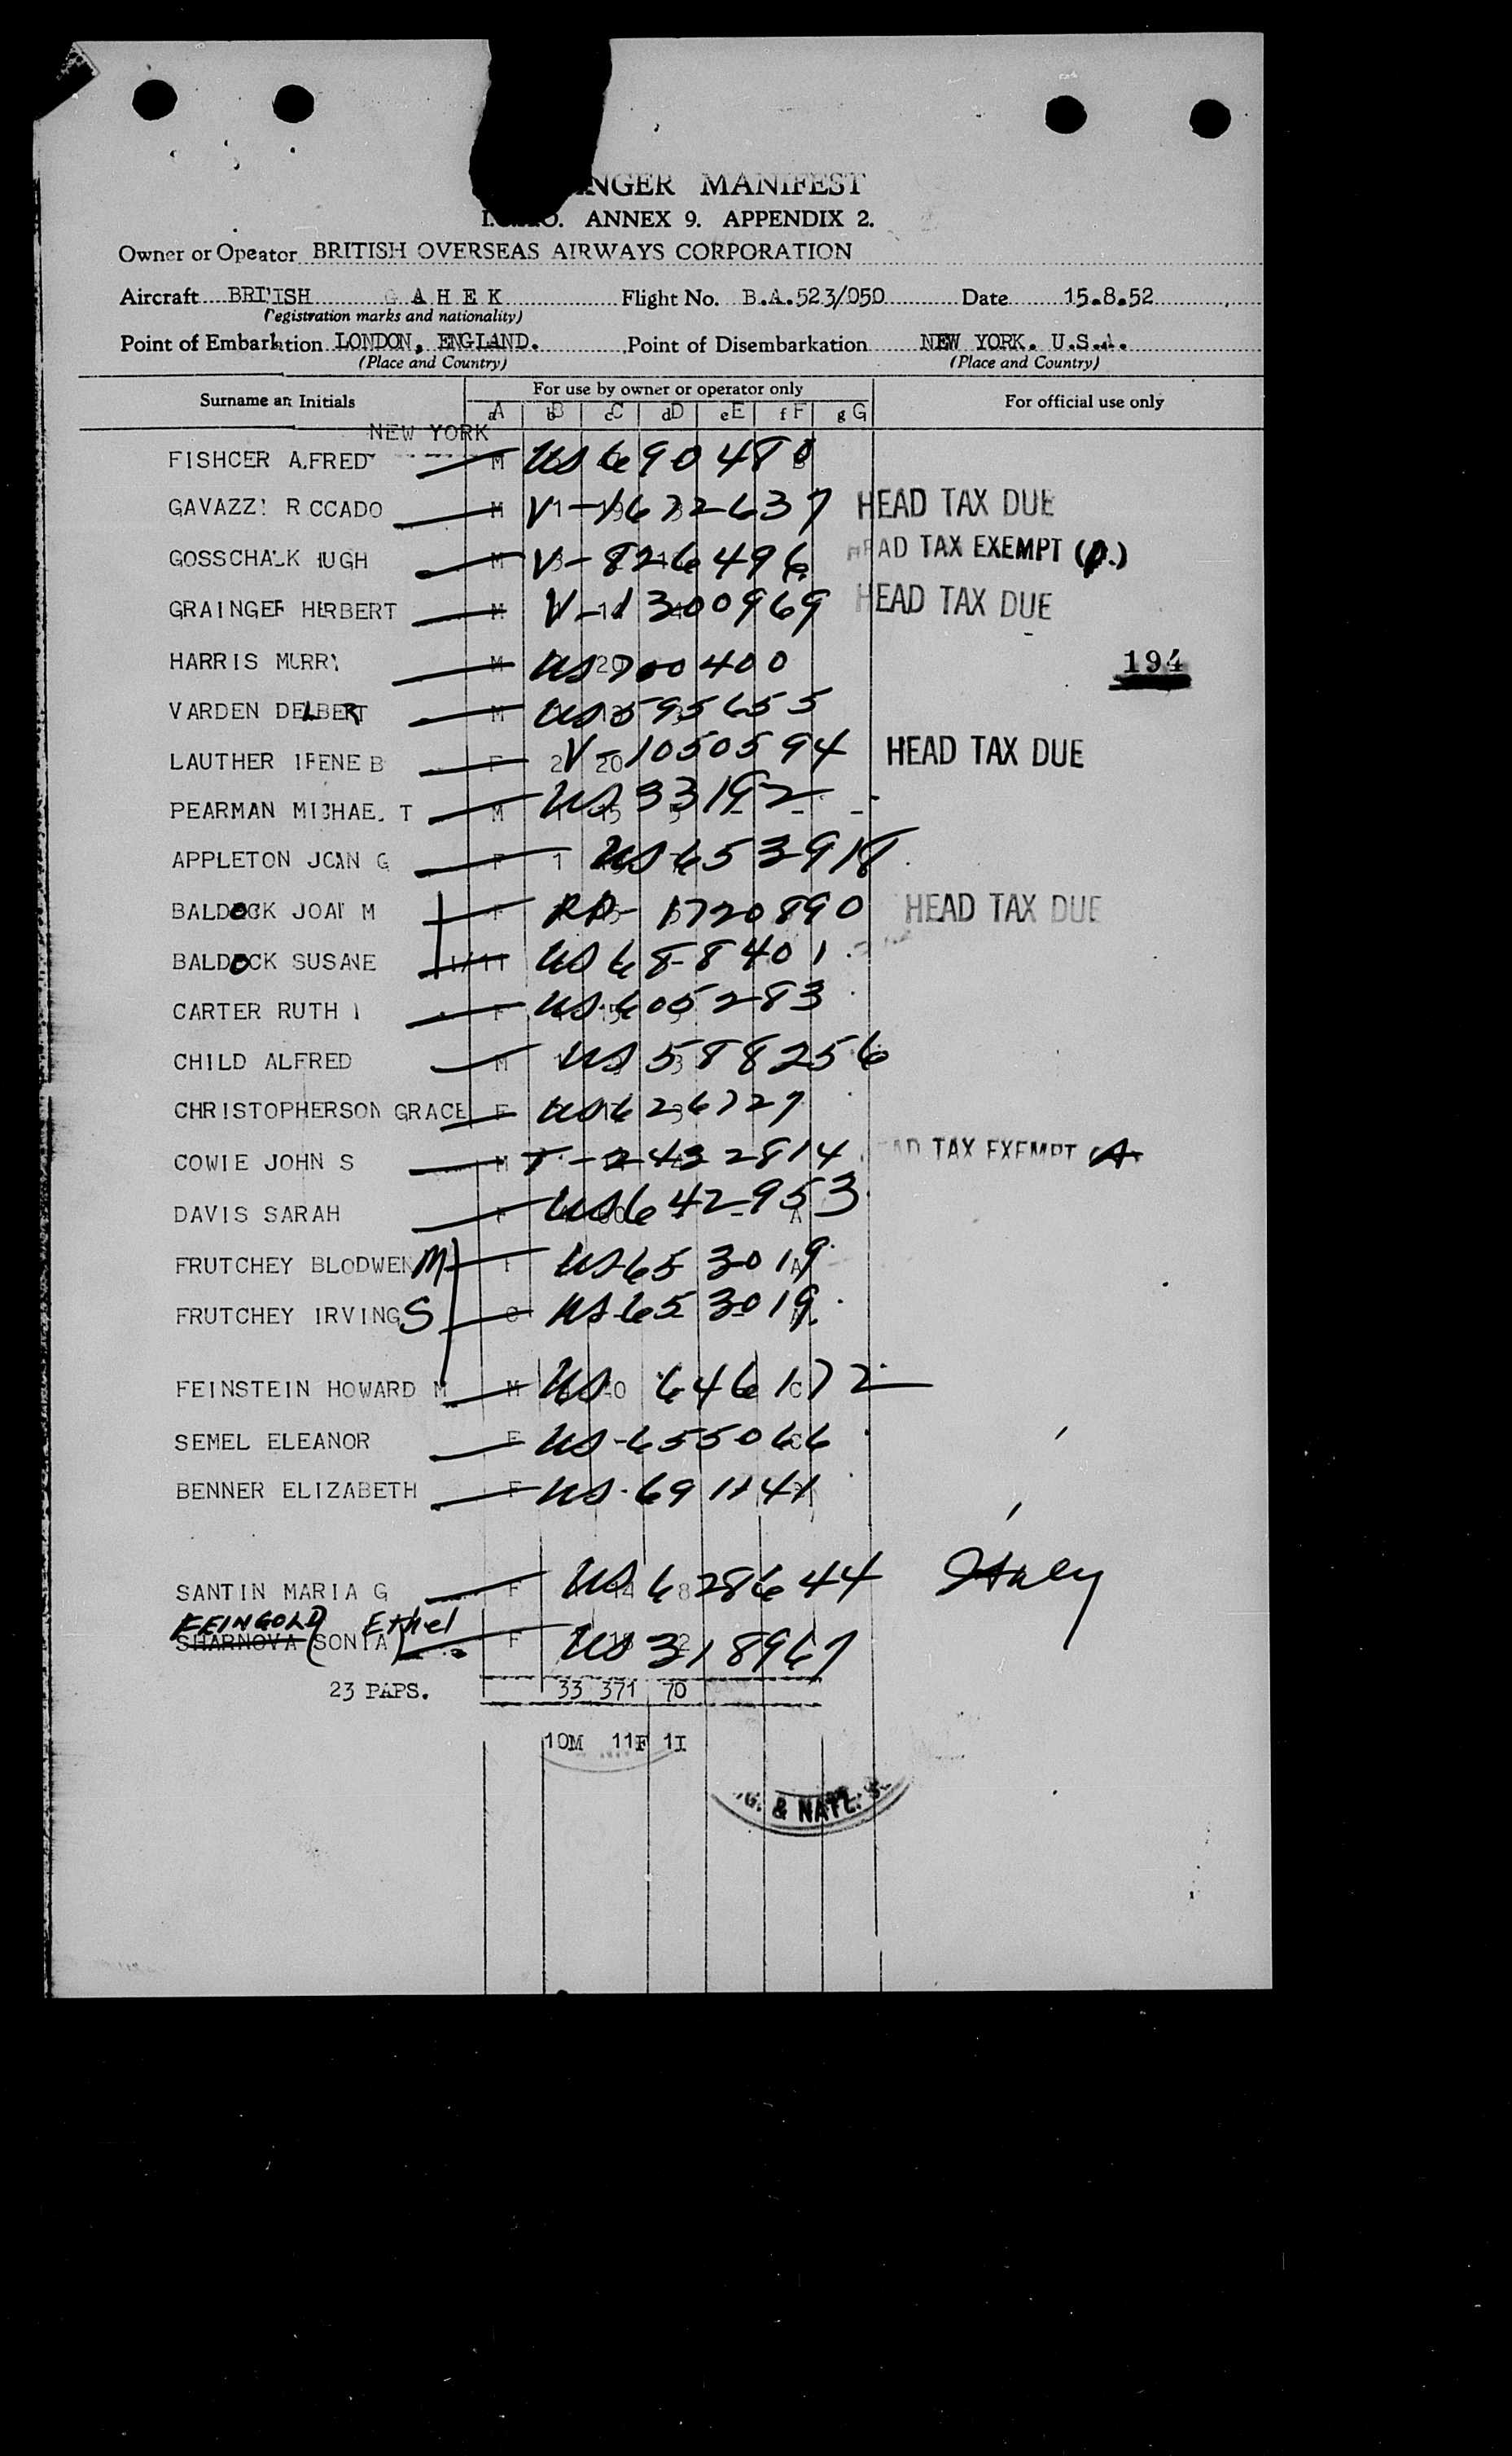 NGER MANIFEST
ANNEX 9. APPENDIX 2.
Owner or Opeator BRITISH OVERSEAS AIRWAYS CORPORATION
Aircraft BRITISH G A H E K Flight No. B.A.523/050 Date 15.8.52
(registration marks and nationality)
Point of Embarkation LONDON, ENGLAND. Point of Disembarkation NEW YORK. U.S.A.
(Place and Country) (Place and Country)
For use by owner or operator only
Surname an Initials For official use only
aA bB cC dD eE fF gG
NEW YORK
FISHCER A.FRED M US 690480
GAVAZZI R CCADO M V-1672637 HEAD TAX DUE
GOSSCHALK HUGH M V-826496 HEAD TAX EXEMPT (P.)
GRAINGER HERBERT M V-1300969 HEAD TAX DUE
HARRIS MURRY M US 700400 194
VARDEN DELBERT M US 595655
LAUTHER IRENE B F V-1050594 HEAD TAX DUE
PEARMAN MICHAE. T M US 33192
APPLETON JOAN G F 1 US 653918
BALDOCK JOAN M F RP- 1720890 HEAD TAX DUE
BALDOCK SUSANE US 688401
CARTER RUTH I F US 605283
CHILD ALFRED M US 588256
CHRISTOPHERSON GRACE F US 626727
COWIE JOHN S M T-2432814 AD TAX EXEMPT
DAVIS SARAH F US 642953
FRUTCHEY BLODWEN M F US 653019
FRUTCHEY IRVING S C US 653019
FEINSTEIN HOWARD M M US 646172
SEMEL ELEANOR F US-655066
BENNER ELIZABETH F US-691141
SANTIN MARIA G F US 628644 Italy
FEINGOLD Ethel
SHARNOVA (SONIA) F US 318967
23 PAPS. 33 371 70
10M 11F 1I
G. & NATZ. S